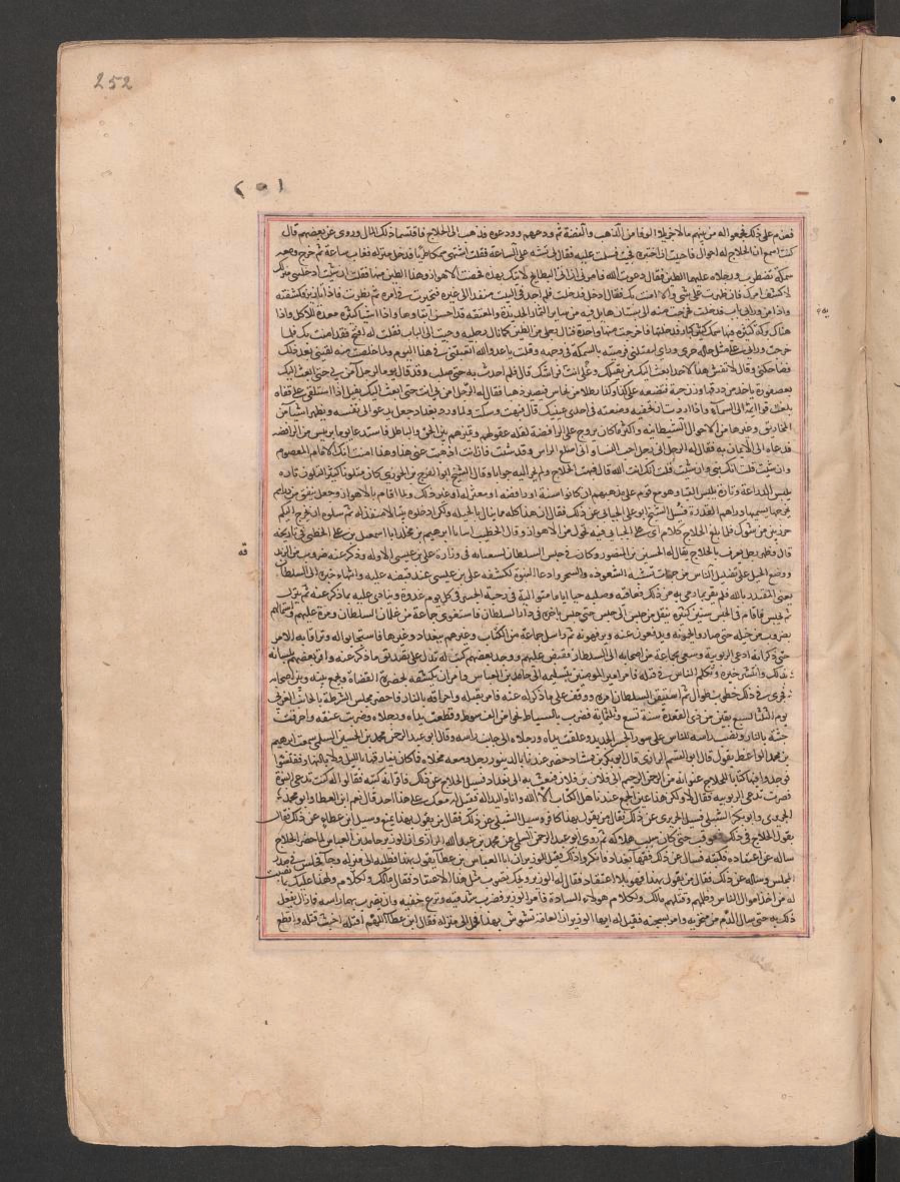 252
٢٥١
فعزم على ذلك فجمعوا له من بينهم مالا جزيلا الوفا من الذهب والفضة ثم ودعهم وودعوه فذهب الى الحلاج فاقتسما ذلك المال وروى عن بعضهم قال
كنت اسمع ان الحلاج له احوال فاحببت ان اختبره فجئت فسلمت عليه فقال لى تشته على الساعة فقلت اشتهى سمكا طريا فدخل منزله فغاب ساعة ثم خرج ومعه
سمكة تضطرب ورجلاه عليهما الطين فقال دعوت الله فامرنى ان اتى البطايح لاتيك بهذه فخضت الاهواز وهذا الطين منها فقلت ان شئت ادخلنى منزلك
لاكشف امرك فان ظهرت على شى والا امنت بك فقال ادخل فدخلت فلم اجد فى البيت منفدا الى غيره فتحيرت فى امره ثم نظرت فاذا تازير فكشفته
واذا من ورائه باب فدخلت فخرجت منه الى بستان هايل فيه من ساير الثمار الجديدة والعتيقة قد احسن ابقاوها واذا اشيا كثيرة معدة للاكل واذا
هناك بركة كبيرة فيها سمك كثير كبار فدخلتها فاخرجت منها واحدة فنال رجلى من الطين كما نال رجليه وجيت الى الباب فقلت له افتح فقد امنت بك فلما
خرجت ورانى على مثل حاله جرى وراى ليقتلنى فرميته بالسمكة فى وجهه وقلت يا عدو الله اتعبتنى فى هذا اليوم ولما خلصت منه لقينى بعد ذلك
فضاحكنى وقال لا تفش هذا لاحد ابعث اليك من يقتلك وعلى انت فراشك قال فلم احدث به حتى صلب وقد قال يوما لرجل آمن بى حتى ابعث اليك
بعصفورة ياخذ من درقها وزن حبة فتضعه على كذا وكذا رطلا من نحاس فيصير ذهبا فقال له الرجل آمن بى انت حتى ابعث اليك بفيل اذا استلقى على قفاه
بلغت قوايمه الى السمآء واذا اردت ان تخفيه وضعته فى احدى عينيك قال فبهت وسكت ولما ورد بغداد جعل يدعو الى نفسه ويظهر اشيآ من
المخاريق وغيرها من الاحوال الشيطانية واكثر ما كان يروج على الرافضة لقلة عقولهم وتميزهم بين الحق والباطل فاستدعى يوما بريس من الرافضة
فدعاه الى الايمان به فقال له الرجل انى رجل احب النسا وانى اصلع الراس وقد شبت فان انت اذهبت عنى هذا وهذا امنت انك الامام المعصوم
وان شئت قلت انك نبى وان شئت قلت انك انت الله قال فبهت الحلاج ولم يحر اليه جوابا وقال الشيخ ابو الفرج بن الجوزى كان متلونا كثير التلون تارة
يلبس الدراعة وتارة يلبس القبا وهو مع قوم على مذهبهم ان كانوا سنة او رافضة او معتزلة او غير ذلك ولما اقام بالاهواز وجعل ينفق من دراهم
يخرجها يسميها دراهم القدرة فسئل الشيخ ابو على الجبائى عن ذلك فقال ان هذا كله مما ينال بالحيلة ولكن ادخلوه بيتا لا منفذ له ثم سلوه ان يخرج اليكم
جرزتين من شوك فلما بلغ الحلاج كلام ابى على الجبائى فيه تحول من الاهواز وقال الخطيب انبأنا ابراهيم بن مخلد انبأنا اسمعيل بن على الخطبى فى تاريخه
قال وظهر رجل يعرف بالحلاج يقال له الحسين بن منصور وكان فى حبس السلطان بسعاية فى وزارة على بن عيسى الاولة وذكر عنه ضروب من الزندقة
ووضع الحيل على تضليل الناس من جهات تشبه الشعوذة والسحر وادعا النبوة فكشفه على بن عيسى عند قبضه عليه وانهى خبره الى السلطان
يعنى المقتدر بالله فلم يقر بما رمى به من ذلك فعاقبه وصلبه حيا اياما متوالية فى رحبة الجسر فى كل يوم غدوة وينادى عليه بما ذكر عنه ثم ينزل
ثم يحبس فاقام فى الحبس سنين كثيرة ينقل من حبس الى حبس حتى حبس باخرة فى دار السلطان فاستغوى جماعة من غلمان السلطان وموه عليهم واستمالهم
بضروب من حيله حتى صاروا يحمونه ويدفعون عنه ويرفهونه ثم راسل جماعة من الكتاب وغيرهم ببغداد وغيرها فاستجابوا له وتراقا به الامر
حتى ذكر انه ادعى الربوبية وسعى بجماعة من اصحابه الى السلطان فقبض عليهم ووجد بعضهم كتب له تدل على تصديق ما ذكر عنه واقر بعضهم بلسانه
بذلك وانتشر خبره وتكلم الناس فى قتله فامر امير المومنين بتسليمه الى حامد بن العباس وامر ان يكشفه بحضرة القضاة ويجمع بينه وبين اصحابه
فجرى فى ذلك خطوب طوال ثم استيقن السلطان امره ووقف على ما ذكر له عنه فامر بقتله واحراقه بالنار فاحضر مجلس الشرطة بالجانب الغربى
يوم الثلثا لسبع بقين من ذى القعدة سنة تسع وثلثماية فضرب بالسياط نحوا من الف سوط وقطعت يداه ورجلاه وضربت عنقه واحرقت
جثته بالنار ونصب راسه للناس على سور الجسر الجديد وعلقت يداه ورجلاه الى جانب راسه وقال ابو عبد الرحمن محمد بن الحسين السلمى سمعت ابرهيم
بن محمد الواعظ يقول قال ابو القسم الرازى قال ابو بكر بن ممشاد حضر عندنا بالدينور رجل ومعه مخلاة فما كان يفارقها بالليل ولا بالنهار ففتشوا
فوجدوا فيها كتابا للحلاج عنوانه من الرحمن الرحيم الى فلان بن فلان فبعث به الى بغداد فسيل الحلاج عن ذلك فاقر انه كتبه فقالوا له كنت تدعى النبوة
فصرت تدعى الربوبية فقال لا ولكن هذا عين الجمع عندنا هل الكاتب الا الله وانا واليد آلة فقيل له معك على هذا احد قال نعم ابن العطا وابو محمد
الجريرى وابو بكر الشبلى فسيل الجريرى عن ذلك فقال من يقول بهذا كافر وسيل الشبلى عن ذلك فقال من يقول بهذا يمنع وسيل ابن عطاء عن ذلك فقال
يقول الحلاج فى ذلك فعوقب حتى كان سبب هلاكه ثم روى ابو عبد الرحمن السلمى عن محمد بن عبد الله الرازى ان الوزير حامد بن العباس لما حضر الحلاج
ساله عن اعتقاده فكتبه فسال عن ذلك فقها بغداد فانكروا ذلك فقيل للوزير ان ابا العباس بن عطا يقول بهذا فطلبه الى منزله وجا فجلس فى صدر
المجلس وساله عن ذلك فقال من يقول بهذا فهو بلا اعتقاد فقال له الوزير ويحك تصوب مثل هذا الاعتقاد فقال مالك ولكلام ولهذا عليك بما نصبت
له من اخذ اموال الناس وظلمهم وقتلهم مالك ولكلام هولاء السادة فامر الوزير فضرب شدقيه ونزع خفيه وان يضرب بهما راسه فما زال يفعل
ذلك به حتى سال الدم من منخريه وامر بسجنه فقيل له ايها الوزير ان العامة تتشوش بهذا فحمل الى منزله فقال ابن عطا اللهم اقتله اخبث قتلة واقطع